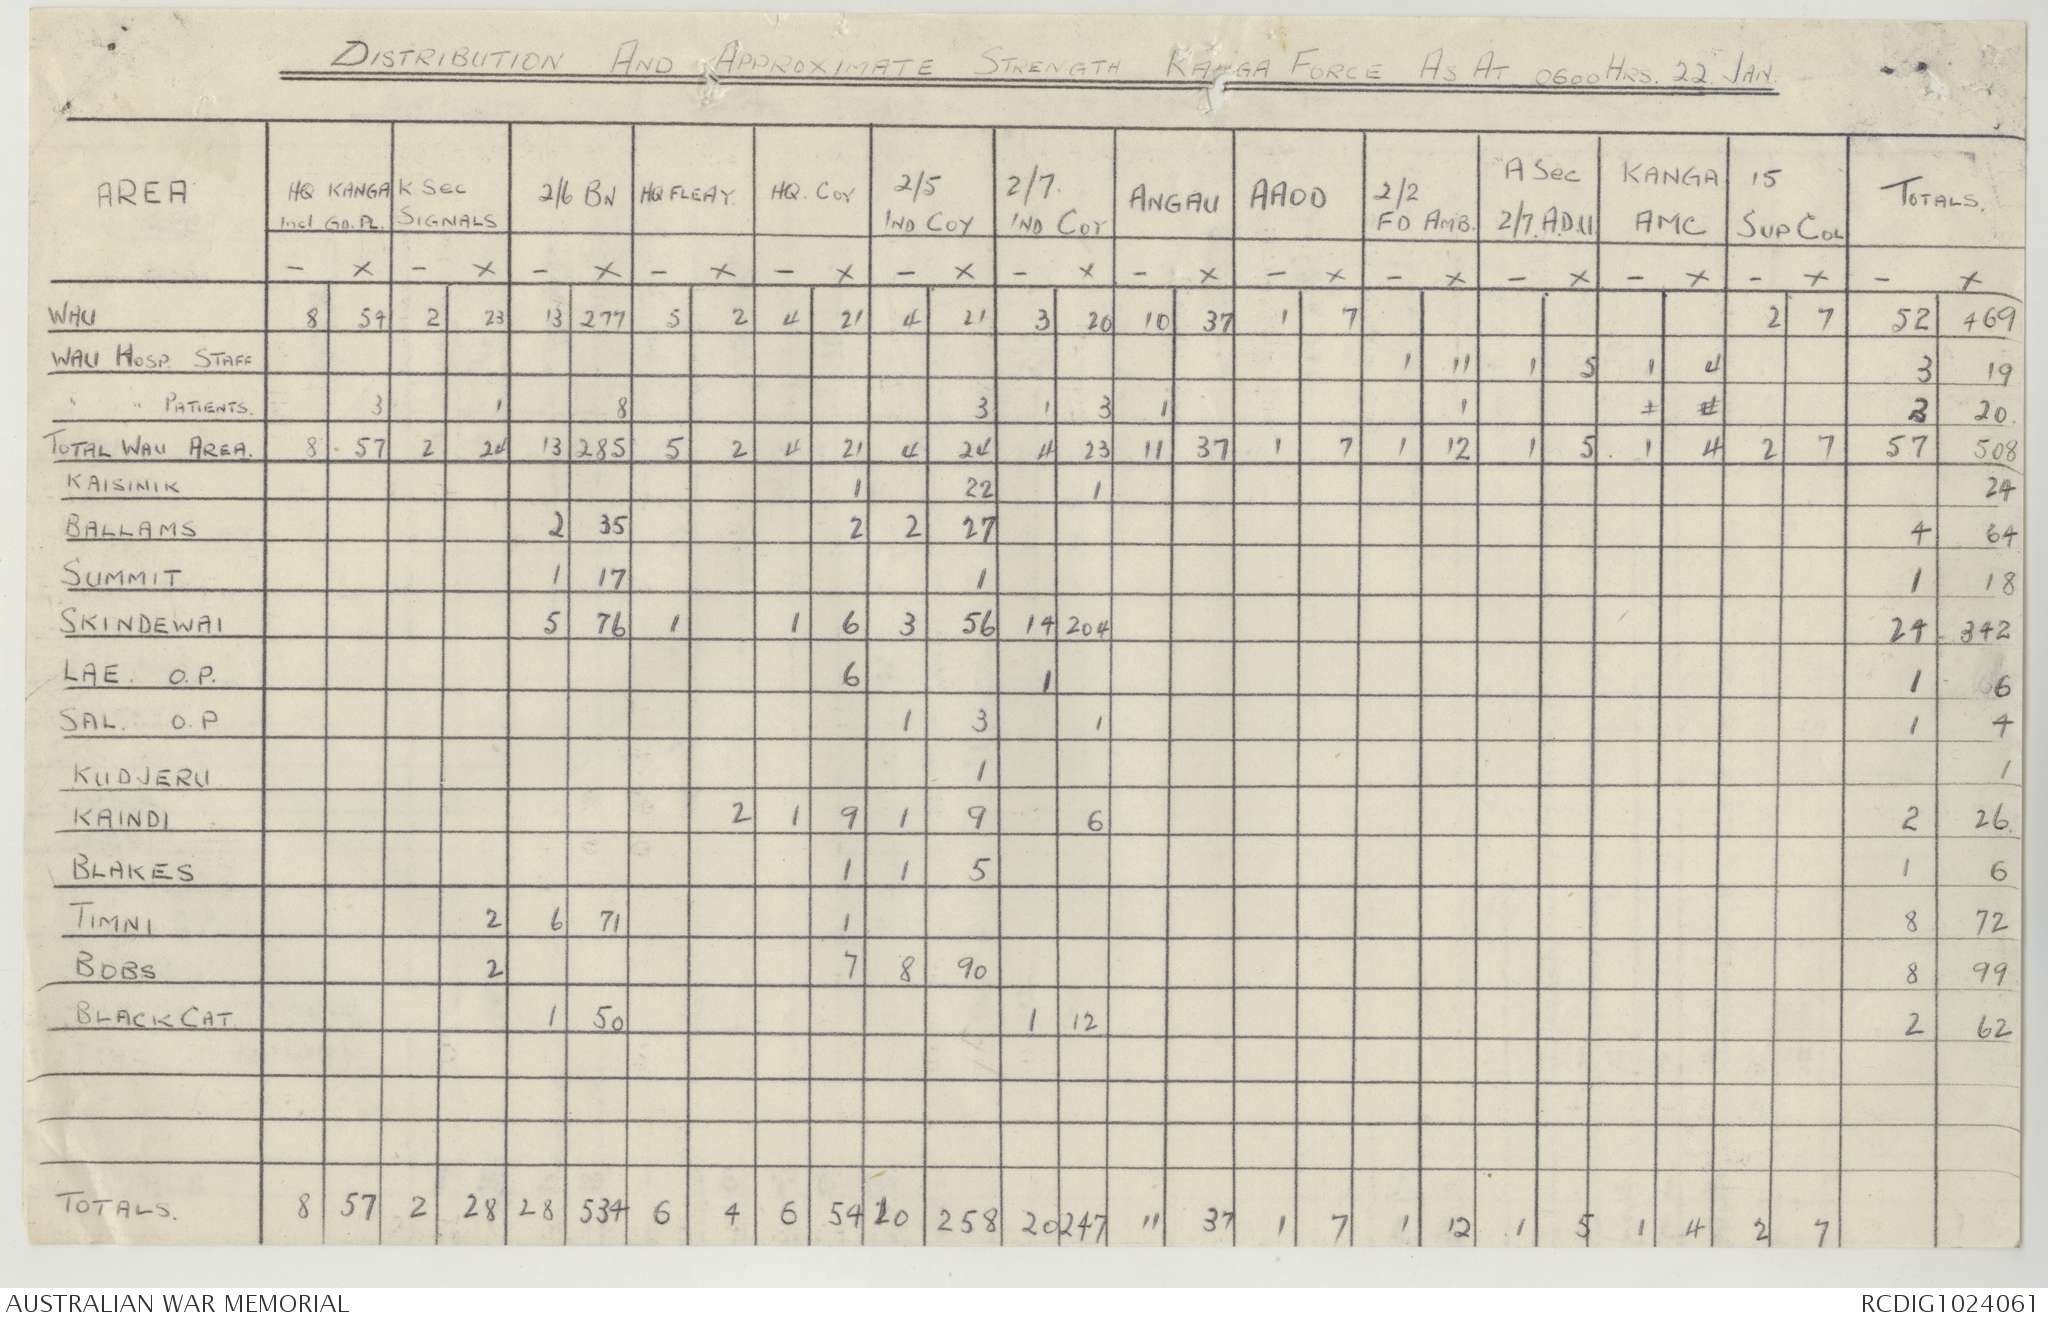 DISTRIBUTION AND APPROXIMATE STRENGTH KANGA FORCE AS AT 0600 HRS. 22 JAN.
AREA HQ KANGA Incl GD. PL. K SEC SIGNALS 2/6 BN HQ FLEAY. HQ. COY 2/5 IND COY 2/7. IND COY ANGAU AAOD 2/2 FD AMB. A SEC 2/7. A.D.U KANGA AMC 15 SUP COL TOTALS.
- x - x - x - x - x - x - x - x - x - x - x - x - x - x
WAU 8 54 2 23 13 277 5 2 4 21 4 21 3 20 10 37 1 7 2 7 52 469
WAU HOSP. STAFF 1 11 1 5 1 4 3 19
" " PATIENTS. 3 1 8 3 1 3 1 1 20.
TOTAL WAU AREA. 8 57 2 24 13 285 5 2 4 21 4 24 4 23 11 37 1 7 1 12 1 5 1 4 2 7 57 508
KAISINIK 1 22 1 24
BALLAMS 2 35 2 2 27 4 64
SUMMIT 1 17 1 1 18
SKINDEWAI 5 76 1 1 6 3 56 14 204 24 342
LAE. O.P. 6 1 1 6
SAL. O.P 1 3 1 1 4
KUDJERU 1 1
KAINDI 2 1 9 1 9 6 2 26.
BLAKES 1 1 5 1 6
TIMNI 2 6 71 1 8 72
BOBS 2 7 8 90 8 99
BLACK CAT. 1 50 1 12 2 62
TOTALS. 8 57 2 28 28 534 6 4 6 54 20 258 20 247 11 37 1 7 1 12 1 5 1 4 2 7
AUSTRALIAN WAR MEMORIAL RCDIG1024061